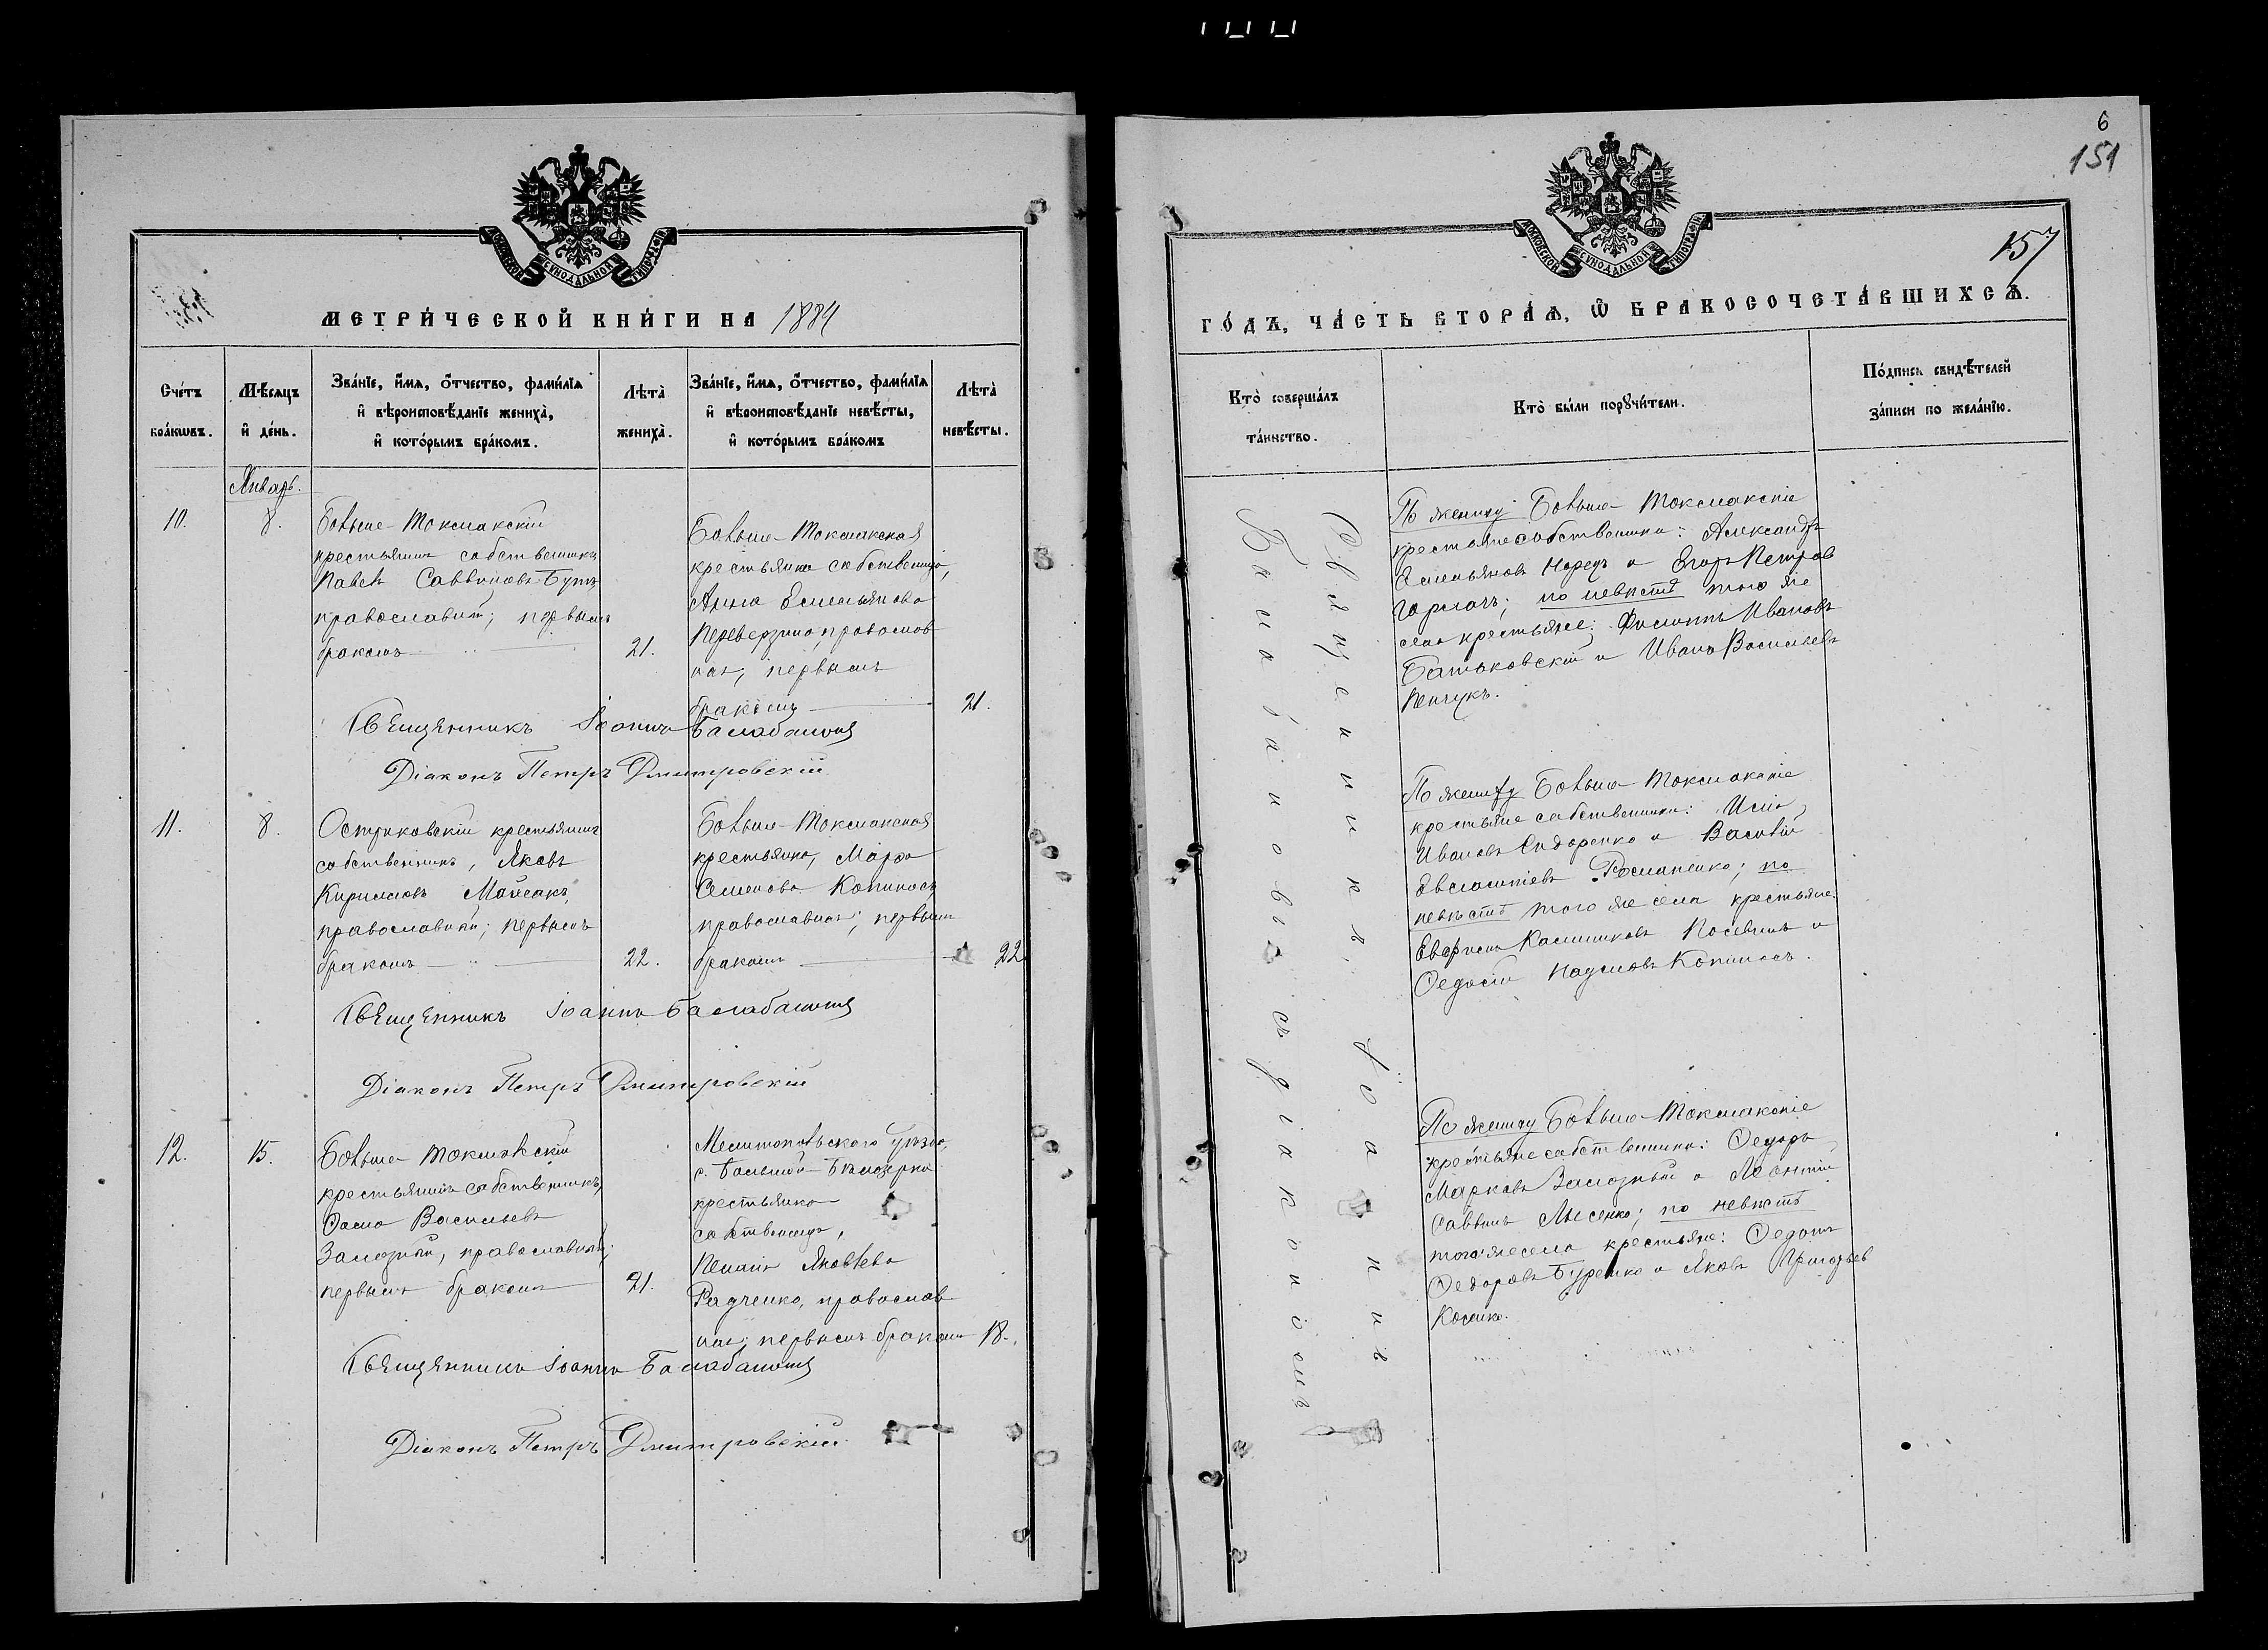 6
151
157
МОСКОВСКОЙ СѴНОДАЛЬНОЙ ТИПОГРАФІИ
МЕТРИ́ЧЕСКОЙ КНИ́ГИ НА 1884
Сче́тъ бра́кѡвъ.
Мѣ́сяцъ и҆ де́нь.
Зва́нїе, и҆́мѧ, ѻ҆́тчество, фами́лїѧ и҆ вѣроисповѣ́данїе жениха̀, и҆ кото́рымъ бра́комъ.
Лѣта̀ жениха̀.
Зва́нїе, и҆́мѧ, ѻ҆́тчество, фами́лїѧ и҆ вѣроисповѣ́данїе невѣ́сты, и҆ кото́рымъ бра́комъ
Лѣта̀ невѣ́сты.
Январь.
10.
8.
Больше-Токмакскій
крестьянинъ собственникъ
Павелъ Саввиновъ
православный; первымъ
бракомъ
21.
Больше-Токмакская
крестьянка собственница,
Анна Емельянова
Переверзина, православ
ная, первымъ
бракомъ
21.
Священникъ Іоаннъ Балабановъ
Діаконъ Петръ Дмитровскій
11.
8.
Остриковскій крестьянинъ
собственникъ, Яковъ
Кирилловъ
православный; первымъ
бракомъ
22.
Больше-Токмакская
крестьянка, Марфа
Семенова Копиносъ,
православная; первымъ
бракомъ
22
Священникъ Іоаннъ Балабановъ
Діаконъ Петръ Дмитровскій
12.
15.
Больше-Токмакскій
крестьянинъ собственникъ,
Фома Васильевъ
Залозный, православный;
первымъ бракомъ
21.
Мелитопольскаго уѣзда,
с. Большой-Бѣлозерки
крестьянка
собственница,
Яковлева
Радченко, православ
ная; первымъ бракомъ 18.
Священникъ Іоаннъ Балабановъ
Діаконъ Петръ Дмитровскій
МОСКОВСКОЙ СѴНОДАЛЬНОЙ ТИПОГРАФІИ
ГО́ДЪ, ЧА́СТЬ ВТОРА́Ѧ, Ѽ БРАКОСОЧЕТА́ВШИХСѦ.
Кто̀ соверша́лъ та́инство.
Кто̀ бы́ли порꙋчи́тели.
По́дпись свидѣ́телей за́писи по жела́нїю.
Священникъ Іоаннъ
Балабановъ съ діакономъ
По жениху Больше-Токмакскіе
крестьяне собственники: Александръ
Емельяновъ и Егоръ Петровъ
Гармашъ; по невѣстѣ того же
села крестьяне: Филиппъ Ивановъ
Батаковскій и Иванъ Васильевъ
Пенчукъ.
По жениху Больше-Токмакскіе
крестьяне собственники:
Ивановъ Сидоренко и Василій
Евсигніевъ Романенко; по
невѣстѣ того же села крестьяне:
Калинниковъ и
Ѳедосій Наумовъ Копиносъ.
По жениху Больше-Токмакскіе
крестьяне собственники: Ѳедоръ
Марковъ Залозный и Леонтій
Саввинъ Лысенко; по невѣстѣ
того же села крестьяне: Ѳедотъ
Ѳедоровъ Буренко и Яковъ Григорьевъ